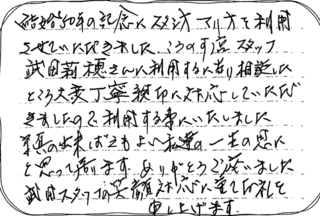 結婚50年の記念にスタジオアリスを利用
させていただきました この店スタッフ
武田莉穂さんに利用するに当り相談した
ところ大変丁寧親切に対応していただ
きましたので利用する事にいたしました
写真の出来ばえもよい私達の一生の思いに
と思って居ります ありがとうございました
武田スタッフの笑顔対応に重ねてお礼を
申し上げます。